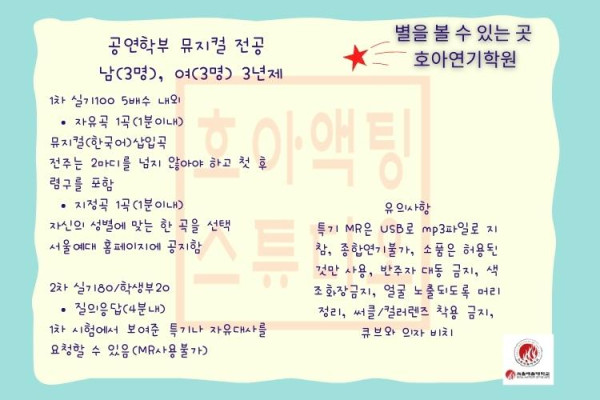 별을 볼 수 있는 곳
호아연기학원
공연학부 뮤지컬 전공
남(3명), 여(3명) 3년제
1차 실기100 5배수 내외
• 자유곡 1곡(1분이내)
뮤지컬(한국어)삽입곡
전주는 2마디를 넘지 않아야 하고 첫 후
렴구를 포함
• 지정곡 1곡(1분이내)
자신의 성별에 맞는 한 곡을 선택
서울예대 홈페이지에 공지함
2차 실기80/학생부20
• 질의응답(4분내)
1차 시험에서 보여준 특기나 자유대사를
요청할 수 있음(MR사용불가)
유의사항
특기 MR은 USB로 mp3파일로 지
참, 종합연기불가, 소품은 허용된
것만 사용, 반주자 대동 금지, 색
조화장금지, 얼굴 노출되도록 머리
정리, 써클/컬러렌즈 착용 금지,
큐브와 의자 비치
호아액팅
스튜디오
서울예술대학교